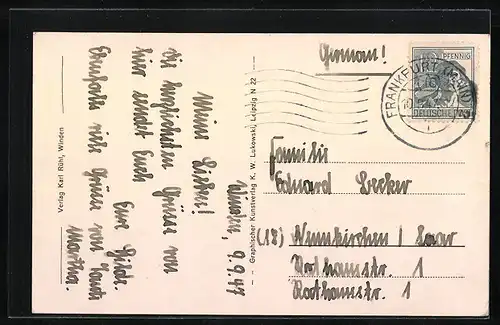 German!
PFENNIG
FRANKFURT (MAIN)
DEUTSCHE
Familie
Eduard Becker
(18) Neunkirchen / Saar
Rathausstr. 1
Rathausstr. 1
Graphischer Kunstverlag K. W. Lukowski, Leipzig N 22
Verlag Karl Rühl, Winden
Winden, 9.9.47
Meine Lieben!
Die herzlichsten Grüsse von
hier sendet Euch
Eure Hilde.
Ebenfalls viele Grüsse von Tante
Martha.